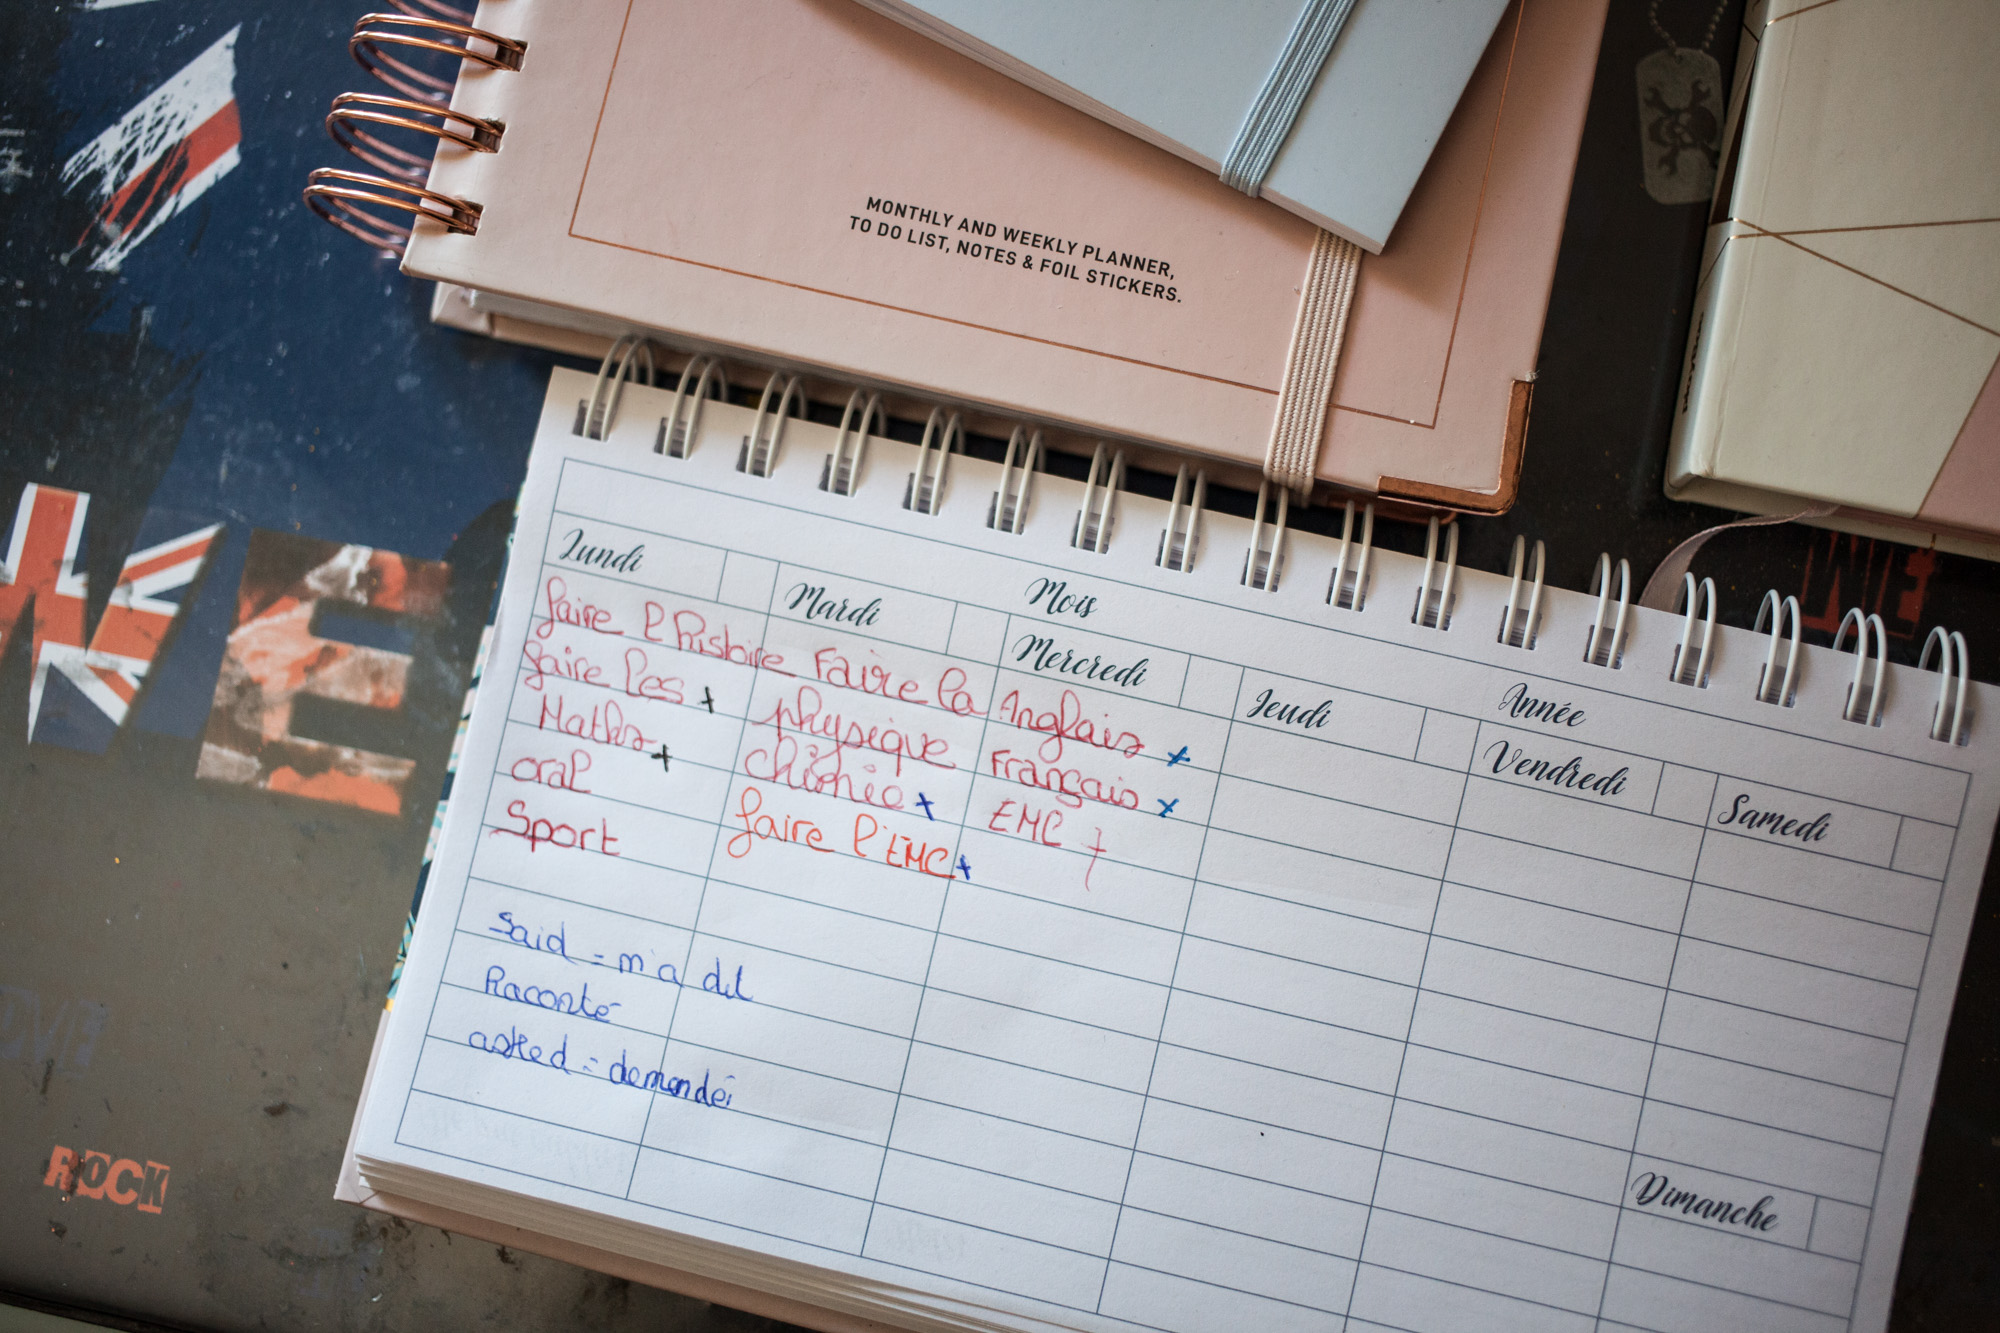 MONTHLY AND WEEKLY PLANNER,
TO DO LIST, NOTES & FOIL STICKERS.
Mois
Année
Lundi
faire l'histoire
faire les +
Maths +
oral
Sport
Mardi
Faire la
physique
chimie +
faire l'EMC +
Mercredi
Anglais x
Français x
EMC +
Jeudi
Vendredi
Samedi
Dimanche
Said = m'a dit
Raconté
asked = demandéi
WE
ROCK